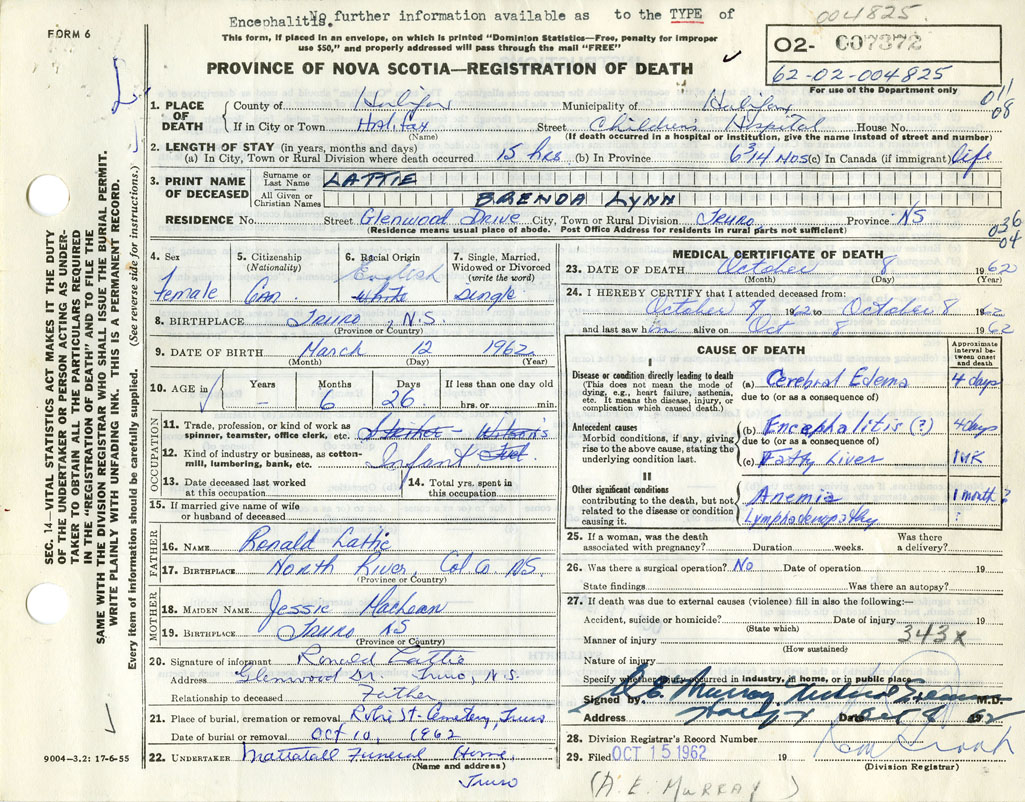 No further information available as to the TYPE of
Encephalitis.
004825.
FORM 6
This form, if placed in an envelope, on which is printed "Dominion Statistics—Free, penalty for improper
use $50," and properly addressed will pass through the mail "FREE"
02- 007372
62-02-004825
For use of the Department only
PROVINCE OF NOVA SCOTIA—REGISTRATION OF DEATH
011
08
SEC. 14—VITAL STATISTICS ACT MAKES IT THE DUTY
OF THE UNDERTAKER OR PERSON ACTING AS UNDER-
TAKER TO OBTAIN ALL THE PARTICULARS REQUIRED
IN THE "REGISTRATION OF DEATH" AND TO FILE THE
SAME WITH THE DIVISION REGISTRAR WHO SHALL ISSUE THE BURIAL PERMIT.
WRITE PLAINLY WITH UNFADING INK. THIS IS A PERMANENT RECORD.
Every item of information should be carefully supplied. (See reverse side for instructions.)
1. PLACE OF DEATH
County of Halifax Municipality of Halifax
If in City or Town Halifax Street Children's Hospital House No.
(Name) (If death occurred in a hospital or institution, give the name instead of street and number)
2. LENGTH OF STAY (in years, months and days)
(a) In City, Town or Rural Division where death occurred 15 hrs (b) In Province 6 3/4 mos (c) In Canada (if immigrant) life
3. PRINT NAME OF DECEASED
Surname or Last Name LATTIE
All Given or Christian Names BRENDA LYNN
RESIDENCE No. Street Glenwood Drive City, Town or Rural Division Truro Province NS
(Residence means usual place of abode. Post Office Address for residents in rural parts not sufficient)
036
04
4. Sex Female
5. Citizenship (Nationality) Can.
6. Racial Origin English White
7. Single, Married, Widowed or Divorced (write the word) Single
8. BIRTHPLACE Truro, N.S.
(Province or Country)
9. DATE OF BIRTH March 12 1962
(Month) (Day) (Year)
10. AGE in Years - Months 6 Days 26 If less than one day old hrs. or min.
OCCUPATION
11. Trade, profession, or kind of work as
spinner, teamster, office clerk, etc.
12. Kind of industry or business, as cotton-
mill, lumbering, bank, etc. Infant
13. Date deceased last worked at this occupation
14. Total yrs. spent in this occupation
15. If married give name of wife or husband of deceased
FATHER
16. NAME Ronald Lattie
17. BIRTHPLACE North River, Col Co NS.
(Province or Country)
MOTHER
18. MAIDEN NAME Jessie
19. BIRTHPLACE Truro NS
(Province or Country)
20. Signature of informant Ronald Lattie
Address Glenwood Dr. Truro, N.S.
Relationship to deceased Father
21. Place of burial, cremation or removal Robie St. Cemetery, Truro
Date of burial or removal Oct 10, 1962
22. UNDERTAKER Mattatall Funeral Home,
(Name and address)
Truro
9004-3.2: 17-6-55
MEDICAL CERTIFICATE OF DEATH
23. DATE OF DEATH October 8 1962
(Month) (Day) (Year)
24. I HEREBY CERTIFY that I attended deceased from:
October 7 1962 to October 8 1962
and last saw him alive on Oct 8 1962
CAUSE OF DEATH
Approximate interval between onset and death
I
Disease or condition directly leading to death
(This does not mean the mode of
dying, e.g., heart failure, asthenia,
etc. It means the disease, injury, or
complication which caused death.)
(a) Cerebral Edema 4 days
due to (or as a consequence of)
Antecedent causes
Morbid conditions, if any, giving
rise to the above cause, stating the
underlying condition last.
(b) Encephalitis (?) 4 days
due to (or as a consequence of)
(c) Fatty Liver 1 WK
II
Other significant conditions
contributing to the death, but not
related to the disease or condition
causing it.
Anemia 1 month?
Lymphadenopathy ?
25. If a woman, was the death associated with pregnancy? Duration weeks. Was there a delivery?
26. Was there a surgical operation? No Date of operation 19
State findings Was there an autopsy?
27. If death was due to external causes (violence) fill in also the following:—
Accident, suicide or homicide? Date of injury 19
(State which)
343x
Manner of injury
(How sustained)
Nature of injury
Specify whether injury occurred in industry, in home, or in public place
Signed by A.E. Murray Medical Examiner M.D.
Address Date Oct 8 62
28. Division Registrar's Record Number
29. Filed OCT 15 1962 19
(Division Registrar)
(A. E. MURRAY)